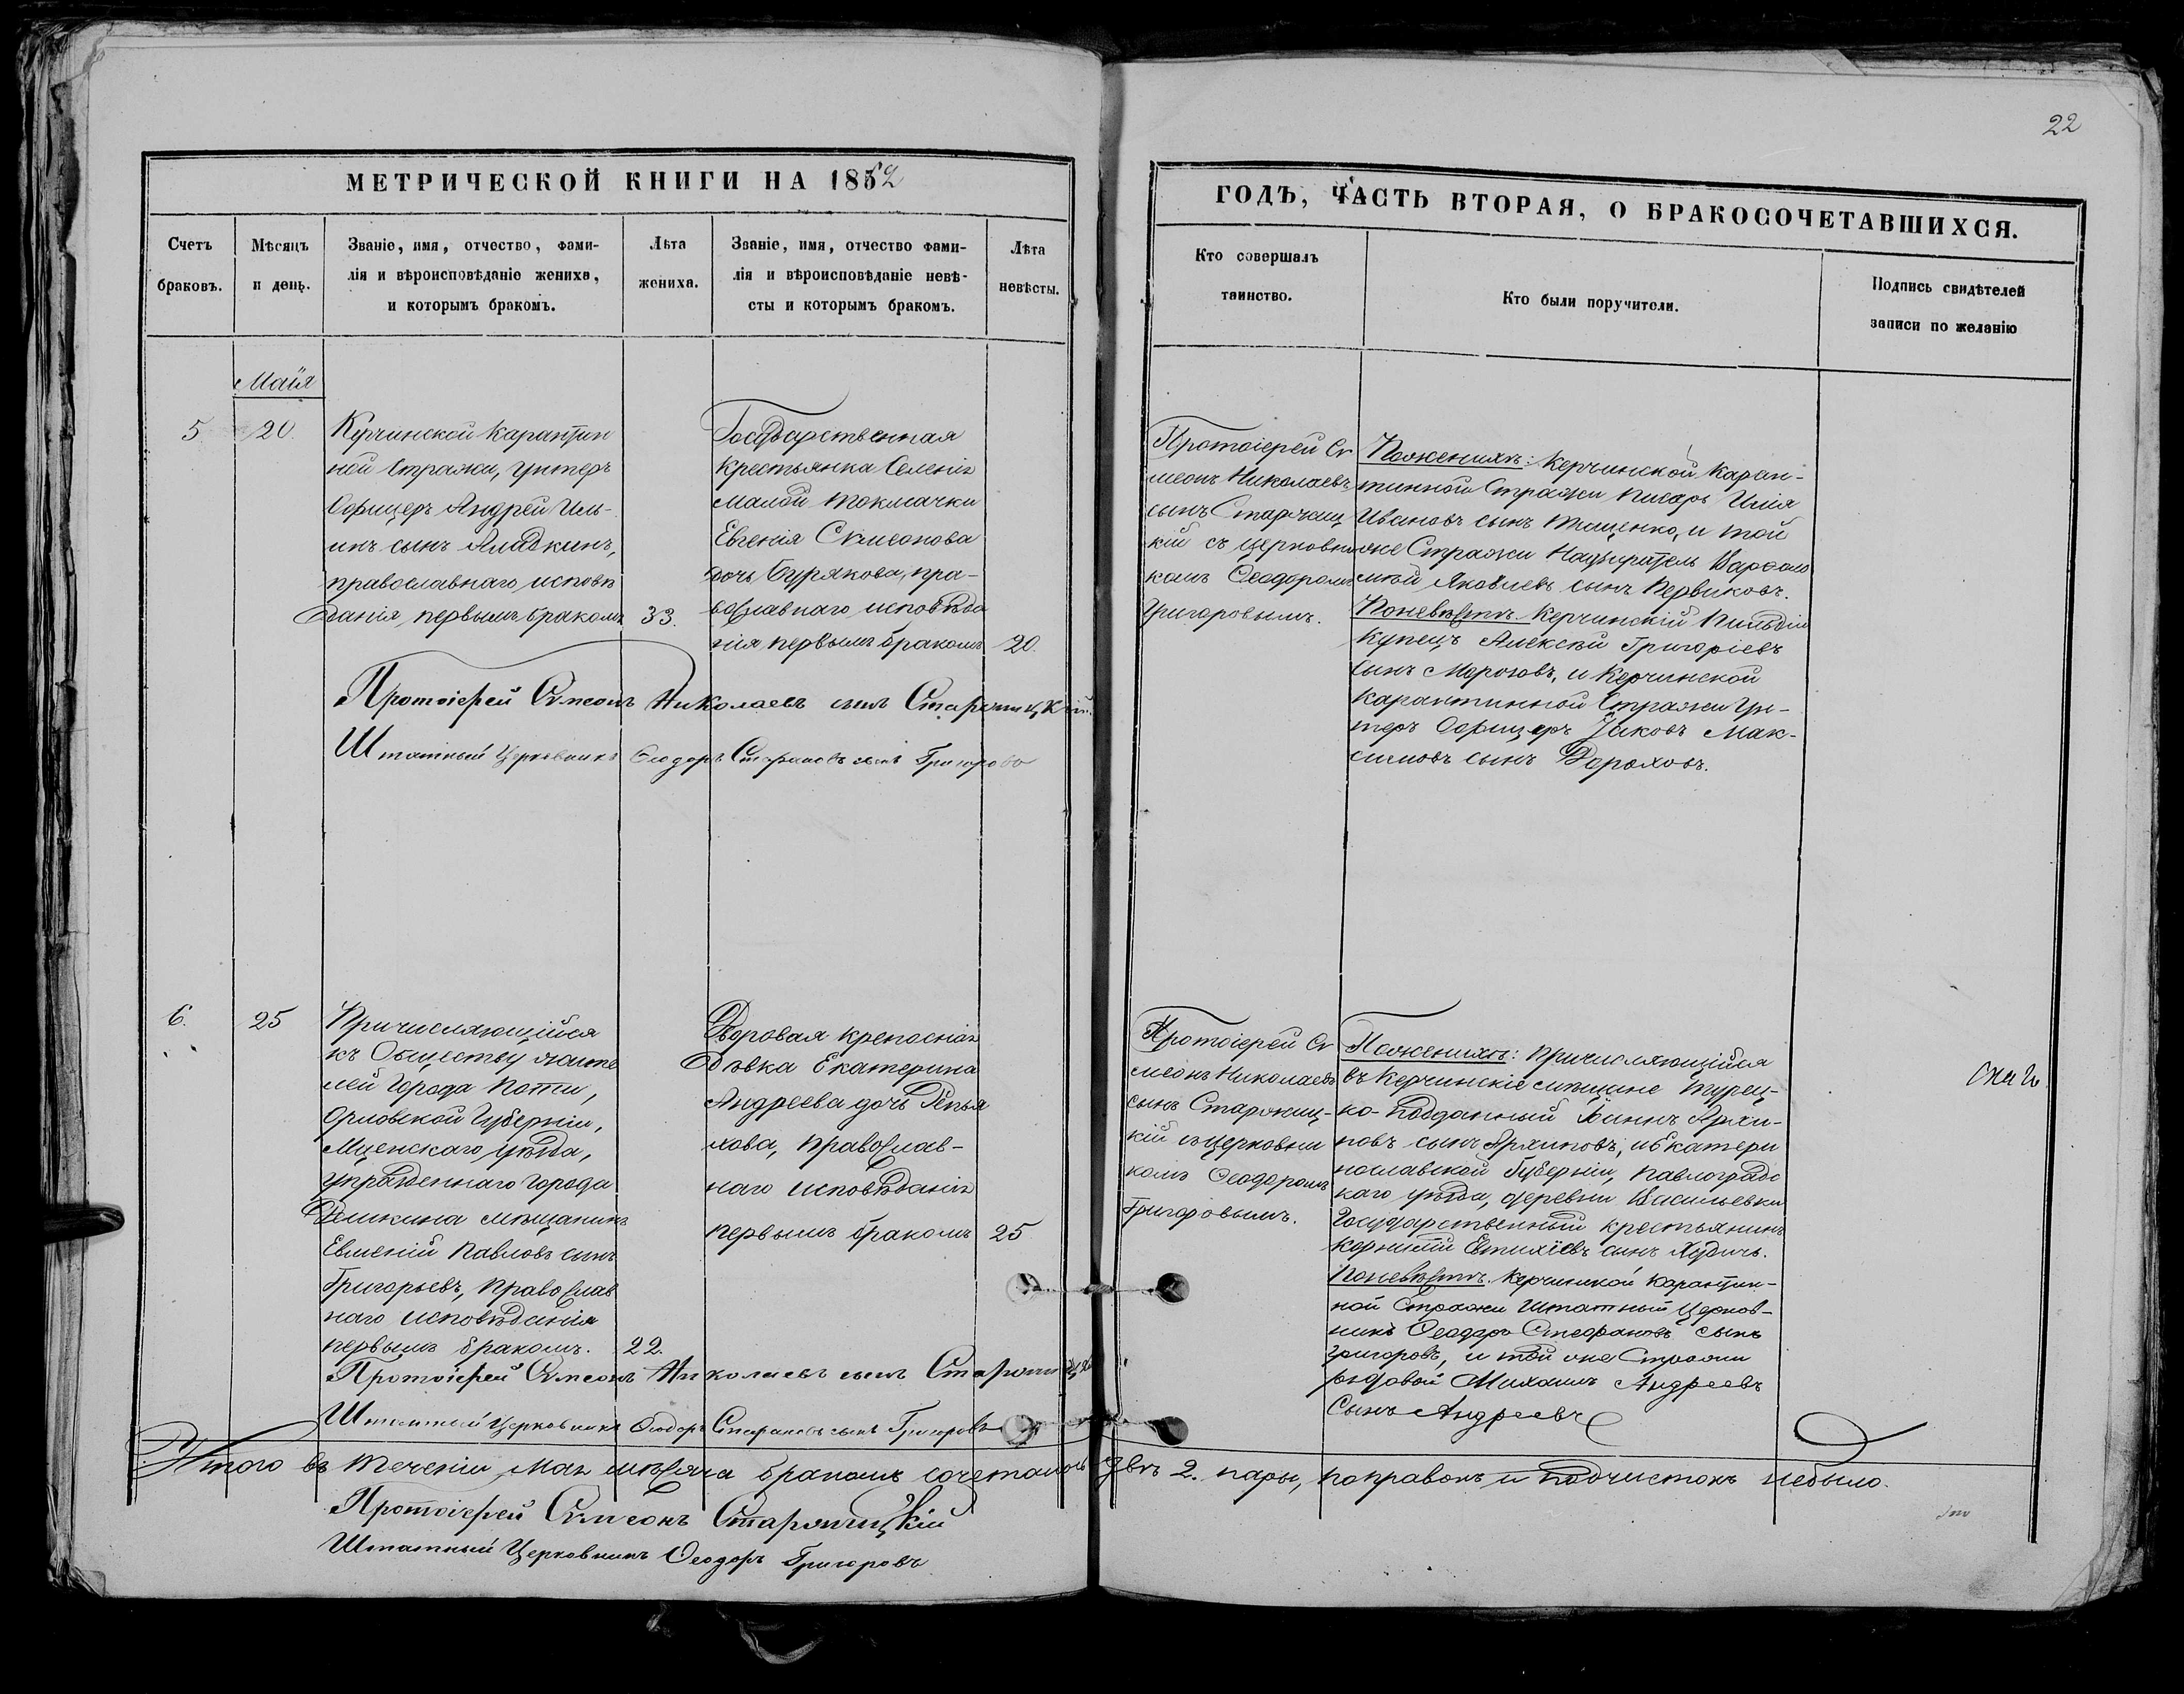 22
МЕТРИЧЕСКОЙ КНИГИ НА 1852
ГОДЪ, ЧАСТЬ ВТОРАЯ, О БРАКОСОЧЕТАВШИХСЯ.
Счетъ
браковъ.
Мѣсяцъ
и день.
Званіе, имя, отчество, фами-
лія и вѣроисповѣданіе жениха,
и которымъ бракомъ.
Лѣта
жениха.
Званіе, имя, отчество фами-
лія и вѣроисповѣданіе невѣ-
сты и которымъ бракомъ.
Лѣта
невѣсты.
Кто совершалъ
таинство.
Кто были поручители.
Подпись свидѣтелей
записи по желанію
Майя
5
20
Керчинской Карантин
ной Стражи, Унтеръ
Офицеръ Андрей Иль-
инъ сынъ Аладкинъ,
православнаго исповѣ
данія, первымъ бракомъ
33.
Государственная
Крестьянка Селенія
Малой Токмачки
Евгенія Симеонова
дочь Бурякова, пра-
вославнаго исповѣда
нія первымъ бракомъ
20.
Протоіерей Си
меонъ Николаевъ
сынъ Старжиц
кій съ церковни
комъ Феодоромъ
Григоровымъ.
Поженихѣ: Керчинской Каран-
тинной Стражи писарь Илія
Ивановъ сынъ Тищенко, и той
же Стражи Надзиратель Варфоло
мей Яковлевъ сынъ Первиковъ.
Поневѣстѣ. Керчинскій Гильдіи
Купецъ Алексѣй Григоріевъ
сынъ Морозовъ, и Керчинской
Карантинной Стражи Ун-
теръ Офицеръ Іаковъ Мак-
симовъ сынъ Дороховъ.
Протоіерей Симеонъ Николаевъ сынъ Старжицкій.
Штатный Церковникъ Феодоръ Стефановъ сынъ Григоровъ
6.
25
Причисляющійся
къ Обществу жите
лей Города Поти,
Орловской Губерніи,
Мценскаго уѣзда,
упраздненнаго города
Дешкина мѣщанинъ
Евменій Павловъ сынъ
Григорьевъ, Православ
наго исповѣданія
первымъ бракомъ.
22.
Дворовая крепосная
дѣвка Екатерина
Андреева дочь Репья
хова, Православ-
наго исповѣданія
первымъ бракомъ
25
Протоіерей Си
меонъ Николаевъ
сынъ Старжиц-
кій съ церковни
комъ Феодоромъ
Григоровымъ.
Поженихѣ: Причисляющійся
въ Керчинскіе мѣщане Турец-
ко-подданный Іоаннъ Архи-
повъ сынъ Архиповъ, и Екатери
нославской Губерніи, Павлоградс
каго уѣзда, деревни Васильевки
Государственный крестьянинъ
Корнилій Евтихіевъ сынъ
Поневѣстѣ. Керчинской Карантин-
ной Стражи Штатный Церков-
никъ Феодоръ Стефановъ сынъ
Григоровъ, и той же Стражи
рядовой Михаилъ Андреевъ
Сынъ Андреевъ
Протоіерей Симеонъ Николаевъ сынъ Старжицкій
Штатный Церковникъ Феодоръ Стефановъ сынъ Григоровъ
Итого въ теченіи Мая мѣсяца бракомъ сочеталось двѣ 2. пары, поправокъ и подчистокъ небыло.
Протоіерей Симеонъ Старжицкій
Штатный Церковникъ Феодоръ Григоровъ